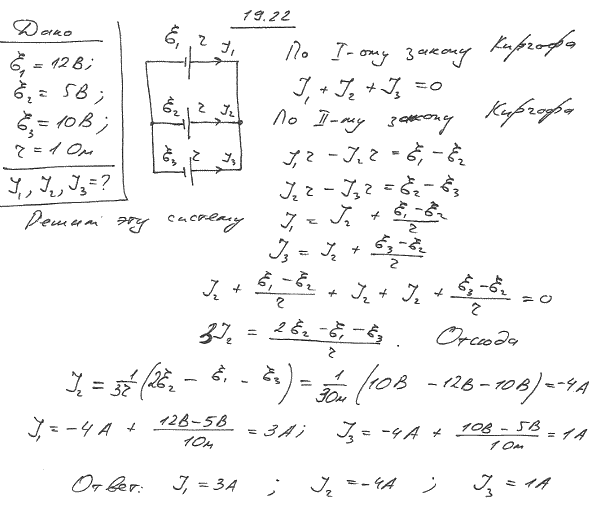 19.22
Дано
ℰ₁ = 12В;
ℰ₂ = 5В;
ℰ₃ = 10В;
r = 1 Ом
J₁, J₂, J₃ = ?
ℰ₁ r J₁
ℰ₂ r J₂
ℰ₃ r J₃
По I-ому закону Киргофа
J₁ + J₂ + J₃ = 0
По II-му закону Киргофа
J₁r - J₂r = ℰ₁ - ℰ₂
J₂r - J₃r = ℰ₂ - ℰ₃
Решим эту систему
J₁ = J₂ + (ℰ₁ - ℰ₂)/r
J₃ = J₂ + (ℰ₃ - ℰ₂)/r
J₂ + (ℰ₁ - ℰ₂)/r + J₂ + J₂ + (ℰ₃ - ℰ₂)/r = 0
3J₂ = (2ℰ₂ - ℰ₁ - ℰ₃)/r . Отсюда
J₂ = 1/3r (2ℰ₂ - ℰ₁ - ℰ₃) = 1/3Ом (10В - 12В - 10В) = -4А
J₁ = -4А + (12В - 5В)/1Ом = 3А; J₃ = -4А + (10В - 5В)/1Ом = 1А
Ответ: J₁ = 3А ; J₂ = -4А ; J₃ = 1А